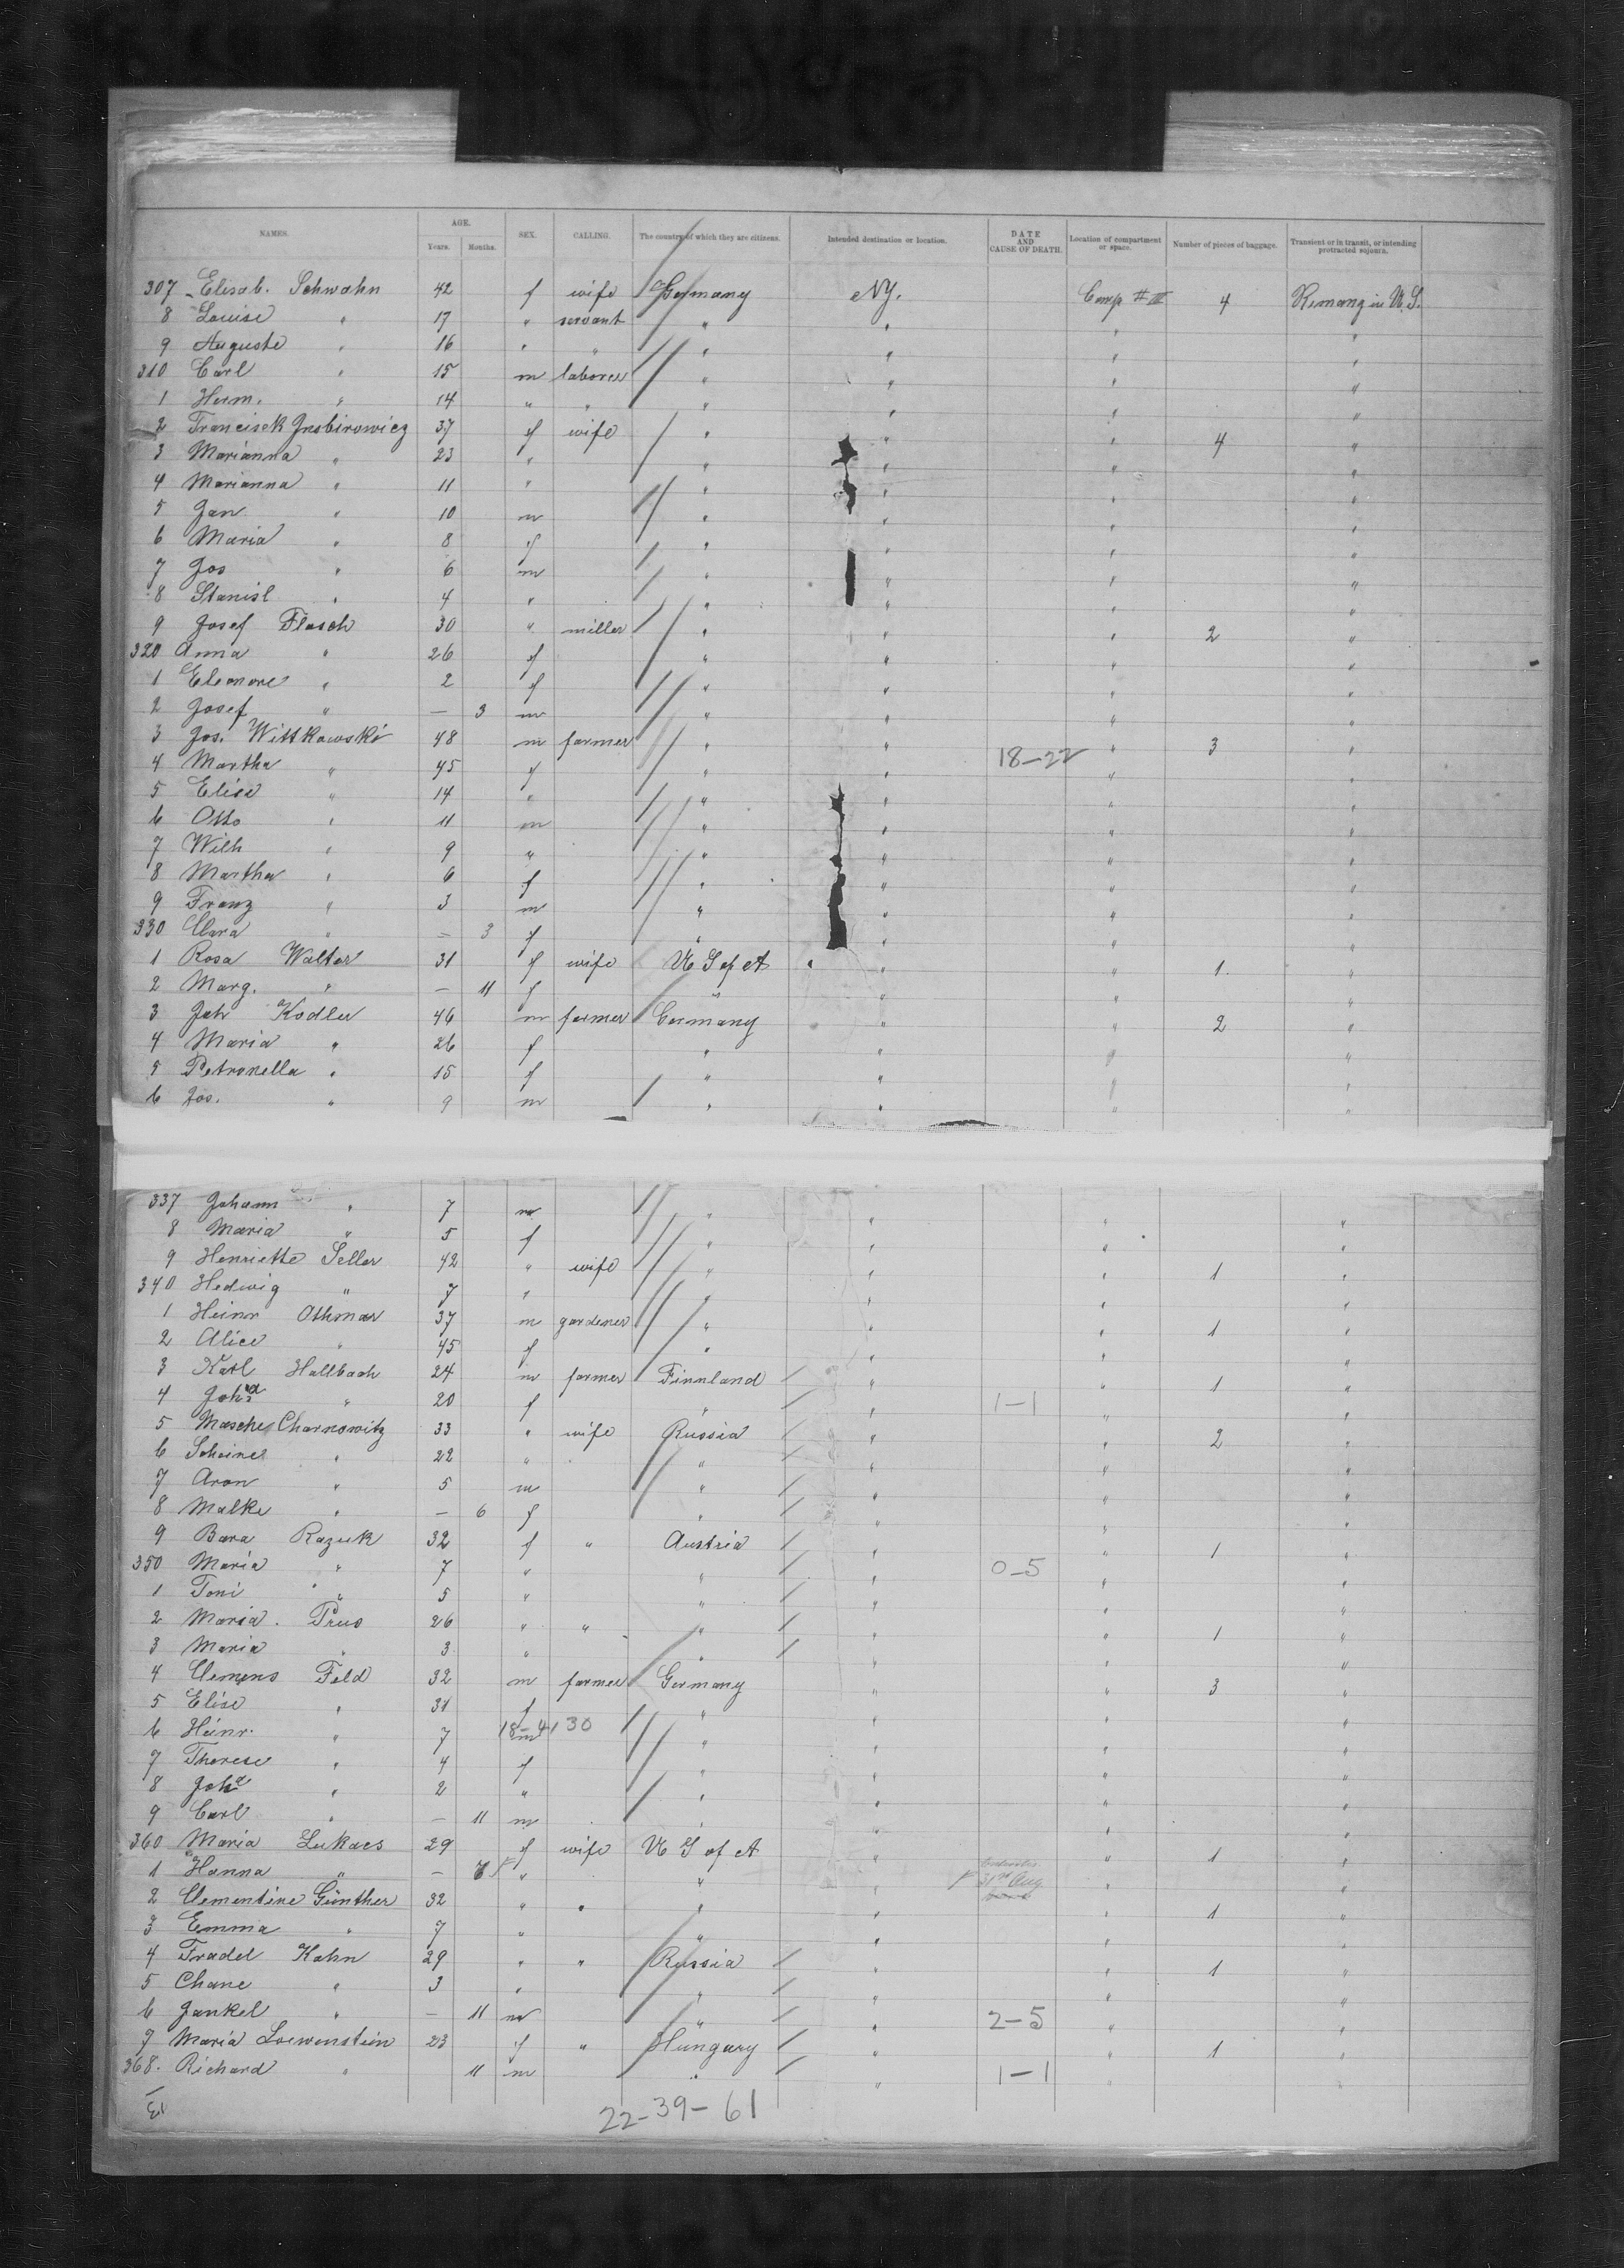 NAMES. AGE. SEX. CALLING. The country of which they are citizens. Intended destination or location. DATE AND CAUSE OF DEATH. Location of compartment or space. Number of pieces of baggage. Transient or in transit, or intending protracted sojourn.
Years. Months.
307 Elisab. Schwahn 42 f wife Germany N.Y. Comp # III 4 Remang in U.S.
8 Louise " 17 " servant " " " "
9 Auguste " 16 " " " " " "
310 Carl " 15 m laborer " " " "
1 Herm. " 14 " " " " " "
2 Francisek 37 f wife " " " 4 "
3 Marianna " 23 " " " " "
4 Marianna " 11 " " " " "
5 Jan " 10 m " " " "
6 Maria " 8 f " " " "
7 Jos " 6 m " " " "
8 Stanisl " 4 " " " " "
9 Josef Flasch 30 " miller " " " 2 "
320 Anna " 26 f " " " "
1 Eleonore " 2 f " " " "
2 Josef " — 3 m " " " "
3 Jos. Wittkowski 48 m farmer " " 18-22 " 3 "
4 Martha " 45 f " " " "
5 Elise " 14 " " " " "
6 Otto " 11 m " " " "
7 Wilh " 9 " " " " "
8 Martha " 6 f " " " "
9 Franz " 3 m " " " "
330 Clara " — 3 f " " " "
1 Rosa Walter 31 f wife U S of A " " 1 "
2 Marg. " — 11 f " " " "
3 Joh Kodler 46 m farmer Germany " " 2 "
4 Maria " 26 f " " " "
5 Petronella " 15 f " " " "
6 Jos. " 9 m " " " "
337 Johann " 7 m " " " "
8 Maria " 5 f " " " "
9 Henriette Seller 42 " wife " " " 1 "
340 Hedwig " 7 " " " " "
1 Heinr Othmar 37 m gardener " " " 1 "
2 Alice " 45 f " " " "
3 Karl Hallbach 24 m farmer Finnland " " 1 "
4 Joha " 20 f " " 1-1 " "
5 Masche Charnowitz 33 " wife Russia " " 2 "
6 Scheine " 22 " " " " "
7 Aron " 5 m " " " "
8 Malke " — 6 f " " " "
9 Bara Razuk 32 f " Austria " " 1 "
350 Maria " 7 " " " 0-5 " "
1 Toni " 5 " " " " "
2 Maria Prus 26 " " " " " 1 "
3 Maria " 3 " " " " "
4 Clemens Feld 32 m farmer Germany " " 3 "
5 Elise " 31 f " " " "
6 Heinr. " 7 m 18-41 30 " " " "
7 Therese " 4 f " " " "
8 Joha " 2 " " " " "
9 Carl " — 11 m " " " "
360 Maria Lukacs 29 f wife U S of A " " 1 "
1 Hanna " — " " " 31st Aug " "
2 Clementine Günther 32 " " " " " 1 "
3 Emma " 7 " " " " "
4 Fradel Kahn 29 " " Russia " " 1 "
5 Chane " 3 " " " " "
6 Jankel " — 11 m " " 2-5 " "
7 Maria Loewenstein 23 f " Hungary " " 1 "
368. Richard " 11 m " " 1-1 " "
22-39-61